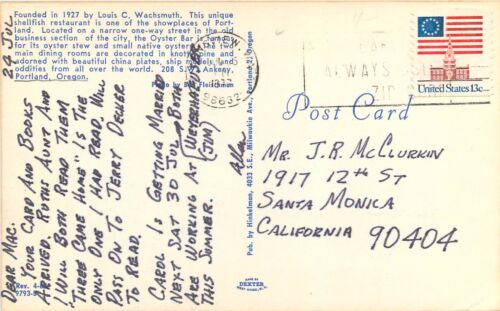 Founded in 1927 by Louis C. Wachsmuth. This unique
shellfish restaurant is one of the showplaces of Port-
land. Located on a narrow one-way street in the old
business section of the city, the Oyster Bar is famous
for its oyster stew and small native oysters. The two
main dining rooms are decorated in knotty pine and
adorned with beautiful china plates, ship models and
oddities from all over the world. 208 S.W. Ankeny,
Portland, Oregon.
Photo by Bob Fleischman
24 JUL
DEAR MAC.
YOUR CARD AND BOOKS
ARRIVED. RUTHS AUNT AND
I WILL BOTH READ THEM
"THREE CAME HOME" IS THE
ONLY ONE I HAD READ. WILL
PASS ON TO JERRY DEWER
TO READ.
CAROL IS GETTING MARRIED
NEXT SAT 30 JUL. BOTH
ARE WORKING AT WEYERHAEUSER
THIS SUMMER. (JIM)
Allen
Rev. 4-
9793-
Pub. by Hinkelman, 4033 S.E. Milwaukie Ave., Portland 2, Oregon
MADE BY
DEXTER
WEST NYACK, N.Y.
98632
ALWAYS
ZIP
United States 13c
Post Card
MR. J.R. MCCLURKIN
1917 12TH ST
SANTA MONICA
CALIFORNIA
90404